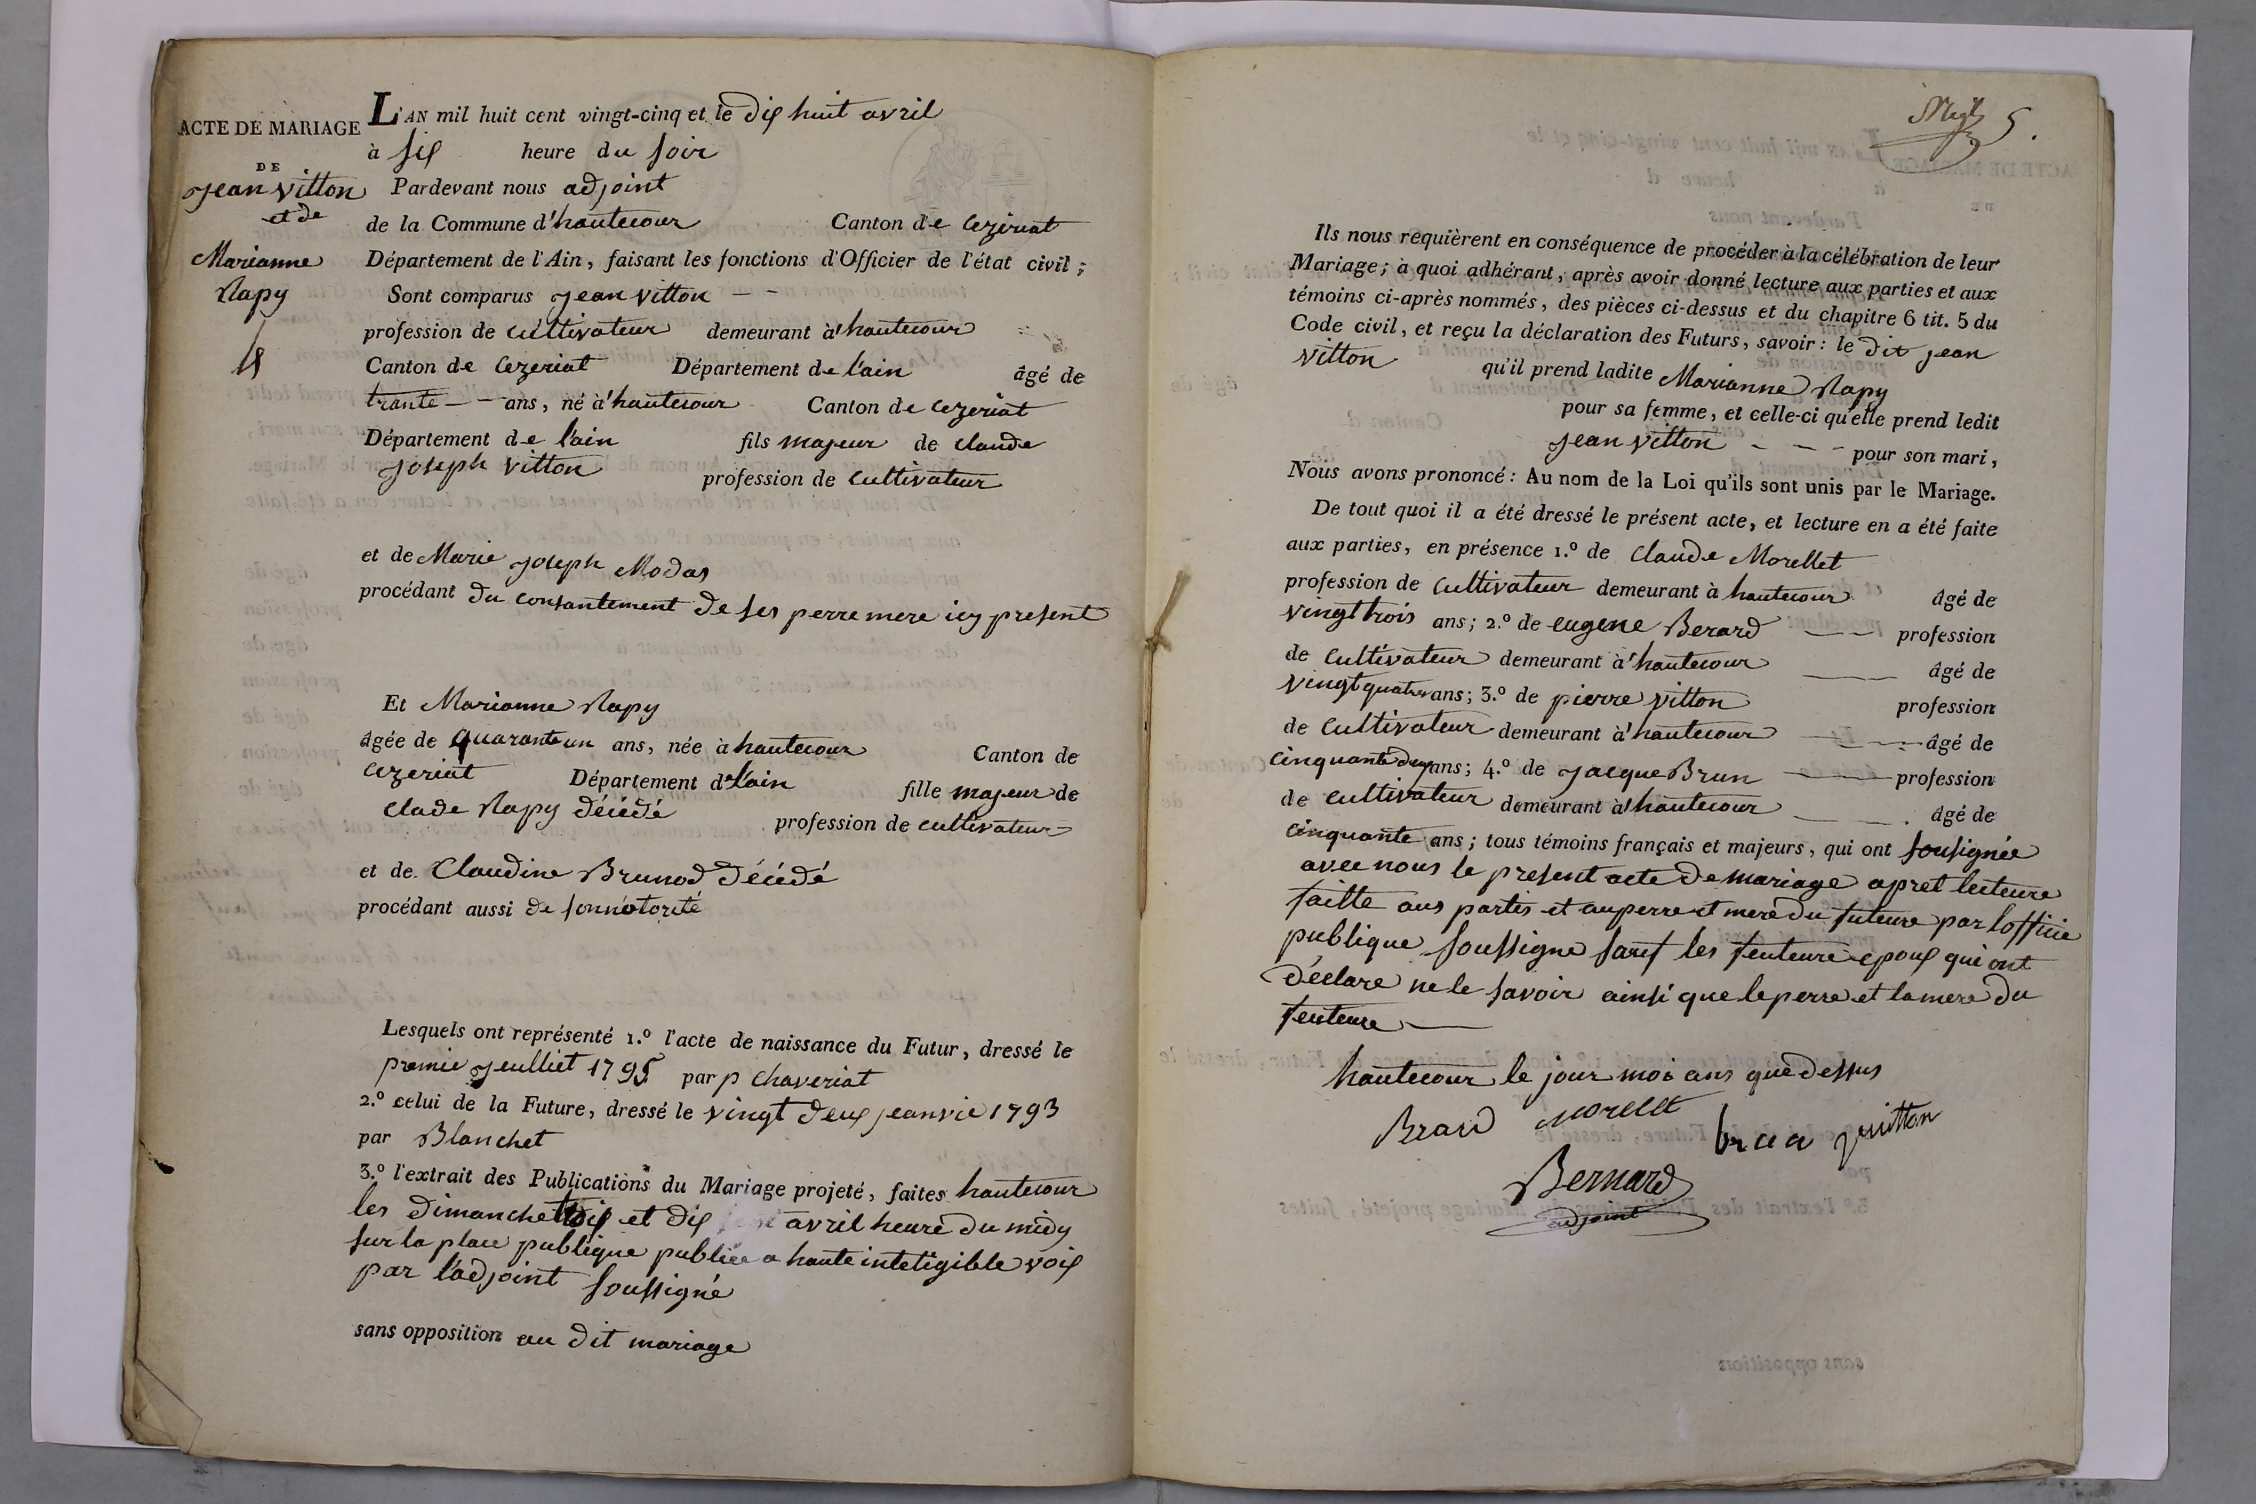 ACTE DE MARIAGE
DE
Jean vitton
et de
Marianne
Rapy
L'AN mil huit cent vingt-cinq et le dix huit avril
à six heure du soir
Pardevant nous adjoint
de la Commune d'hautecour Canton de Cezeriat
Département de l'Ain, faisant les fonctions d'Officier de l'état civil;
Sont comparus Jean vitton
profession de cultivateur demeurant à hautecour
Canton de Cezeriat Département de l'ain âgé de
trante ans, né à hautecour Canton de Cezeriat
Département de l'ain fils majeur de claude
Joseph vitton profession de cultivateur
et de Marie Joseph Modas
procédant du consantement de ses perre mere icy present
Et Marianne Rapy
âgée de quarante un ans, née à hautecour Canton de
Cezeriat Département de l'ain fille majeur de
Clade Rapy décédé profession de cultivateur
et de Claudine Brunod décédé
procédant aussi de sonnotorité
Lesquels ont représenté 1.º l'acte de naissance du Futur, dressé le
premie Jeulliet 1795 par p Chaveriat
2.º celui de la Future, dressé le vingt deux jeanvie 1793
par Blanchet
3.º l'extrait des Publications du Mariage projeté, faites hautecour
les dimanche dix et dix avril heure du midy
sur la place publique publiée a haute intetigible voix
par l'adjoint soussigné
sans opposition au dit mariage
5.
Ils nous requièrent en conséquence de procéder à la célébration de leur
Mariage; à quoi adhérant, après avoir donné lecture aux parties et aux
témoins ci-après nommés, des pièces ci-dessus et du chapitre 6 tit. 5 du
Code civil, et reçu la déclaration des Futurs, savoir: le dit jean
vitton qu'il prend ladite Marianne Rapy
pour sa femme, et celle-ci qu'elle prend ledit
Jean vitton pour son mari,
Nous avons prononcé: Au nom de la Loi qu'ils sont unis par le Mariage.
De tout quoi il a été dressé le présent acte, et lecture en a été faite
aux parties, en présence 1.º de Claude Morellet
profession de cultivateur demeurant à hautecour âgé de
vingt trois ans; 2.º de eugene Berard profession
de cultivateur demeurant à hautecour âgé de
vingt quatre ans; 3.º de pierre vitton profession
de cultivateur demeurant à hautecour âgé de
cinquante deux ans; 4.º de Jacque Brun profession
de cultivateur demeurant à hautecour âgé de
cinquante ans; tous témoins français et majeurs, qui ont sousignée
avec nous le present acte de mariage apret lecteure
faitte aus partis et auperre et mere du futeure par l'officie
publique soussigne sauf les feuteure epoux qui ont
déclare ne le savoir ainsi que le perre et la mere du
feuteure
hautecour le jour moi ans que dessus
Brard morellet brun pvitton
Bernard
adjoint